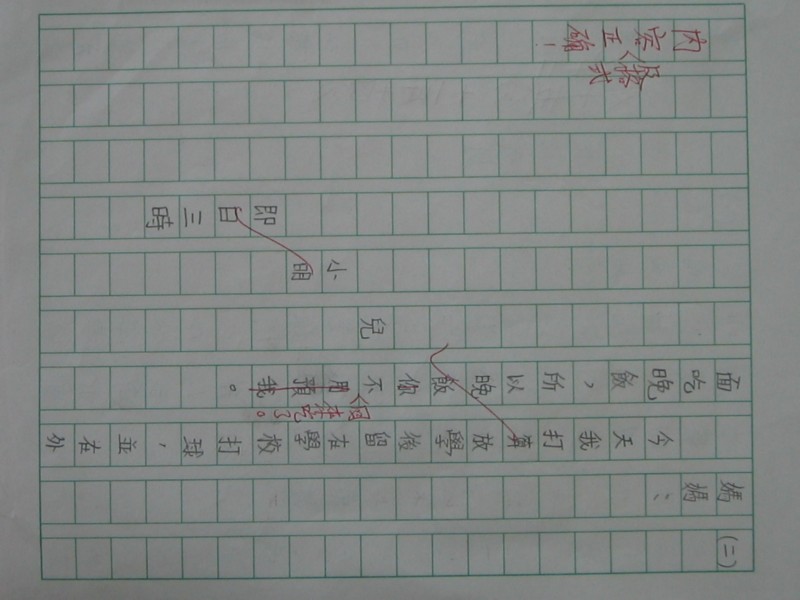 (二)
媽媽:
今天我打算放學後留在學校打球,並在外
面吃晚飯,所以晚飯你不用預我。
回吃了。
兒
小明
即日三時
及格式
內容正確!